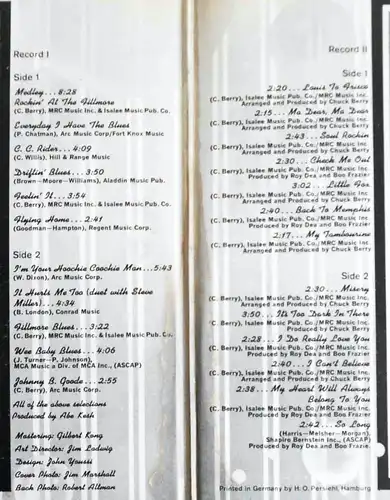 Record I
Side 1
Medley...8:28
Rockin' At The Fillmore
(C. Berry), MRC Music Inc. & Isalee Music Pub. Co.
Everyday I Have The Blues
(P. Chatman), Arc Music Corp/Fort Knox Music
C. C. Rider...4:09
(C. Willis), Hill & Range Music
Driftin' Blues...3:50
(Brown—Moore—Williams), Aladdin Music Pub.
Feelin' It...3:54
(C. Berry), MRC Music Inc. & Isalee Music Pub. Co.
Flying Home...2:41
(Goodman—Hampton), Regent Music Corp.
Side 2
I'm Your Hoochie Coochie Man...5:43
(W. Dixon), Arc Music Corp.
It Hurts Me Too (duet with Steve
Miller)...4:34
(B. London), Conrad Music
Fillmore Blues...3:22
(C. Berry), MRC Music Inc. & Isalee Music Pub. Co.
Wee Baby Blues...4:06
(J. Turner—P. Johnson),
MCA Music a Div. of MCA Inc., (ASCAP)
Johnny B. Goode...2:55
(C. Berry), Arc Music Corp.
All of the above selections
Produced by Abe Kesh
Mastering: Gilbert Kong
Art Director: Jim Ladwig
Design: John Youssi
Cover Photo: Jim Marshall
Back Photo: Robert Altman
Record II
Side 1
2:20...Louis To Frisco
(C. Berry), Isalee Music Pub. Co./MRC Music Inc.
Arranged and Produced by Chuck Berry
2:15...Ma Dear, Ma Dear
(C. Berry), Isalee Music Pub. Co./MRC Music Inc.
Arranged and Produced by Chuck Berry
2:43...Soul Rockin
(C. Berry), Isalee Music Pub. Co./MRC Music Inc.
Arranged and Produced by Chuck Berry
2:30...Check Me Out
(C. Berry), Isalee Music Pub. Co./MRC Music Inc.
Produced by Roy Dea and Boo Frazier
3:02...Little Fox
(C. Berry), Isalee Music Pub. Co./MRC Music Inc.
2:40...Back To Memphis
(C. Berry), Isalee Music Pub. Co./MRC Music Inc.
Produced by Roy Dea and Boo Frazier
2:17...My Tambourine
(C. Berry), Isalee Music Pub. Co./MRC Music Inc.
Arranged and Produced by Chuck Berry
Side 2
2:30...Misery
(C. Berry), Isalee Music Pub. Co./MRC Music Inc.
3:50...It's Too Dark In There
(C. Berry), Isalee Music Pub. Co./MRC Music Inc.
Produced by Chuck Berry
2:28...I Do Really Love You
(C. Berry), Isalee Music Pub. Co./MRC Music Inc.
Produced by Roy Dea and Boo Frazier
2:40...I Can't Believe
(C. Berry), Isalee Music Pub. Co./MRC Music Inc.
Produced by Roy Dea and Boo Frazier
2:38...My Heart Will Always
Belong To You
(C. Berry), Isalee Music Pub. Co./MRC Music Inc.
2:42...So Long
(Harris—Melsher—Morgan),
Shapiro Bernstein Inc., (ASCAP)
Produced by Roy Dea and Boo Frazie
Printed in Germany by H. O. Persiehl, Hamburg